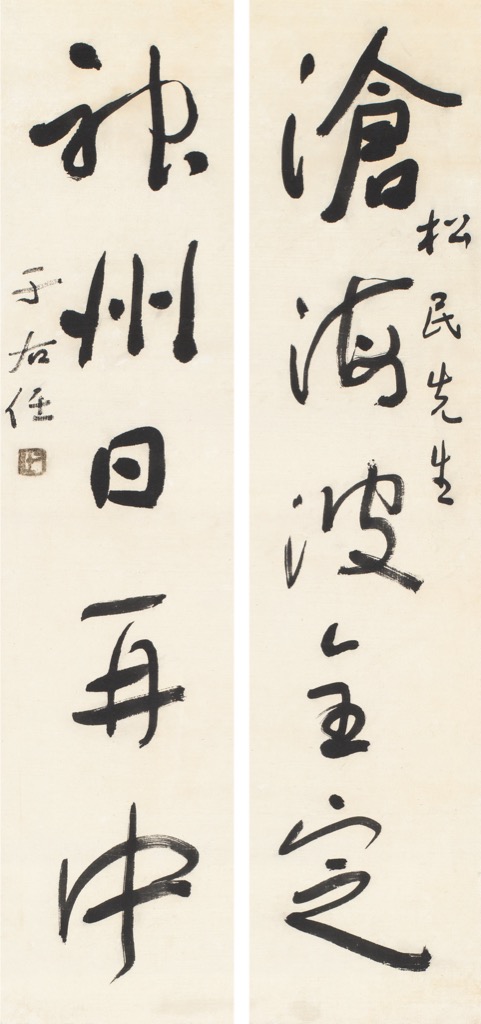 松民先生
滄海波全定
神州日再中
于右任